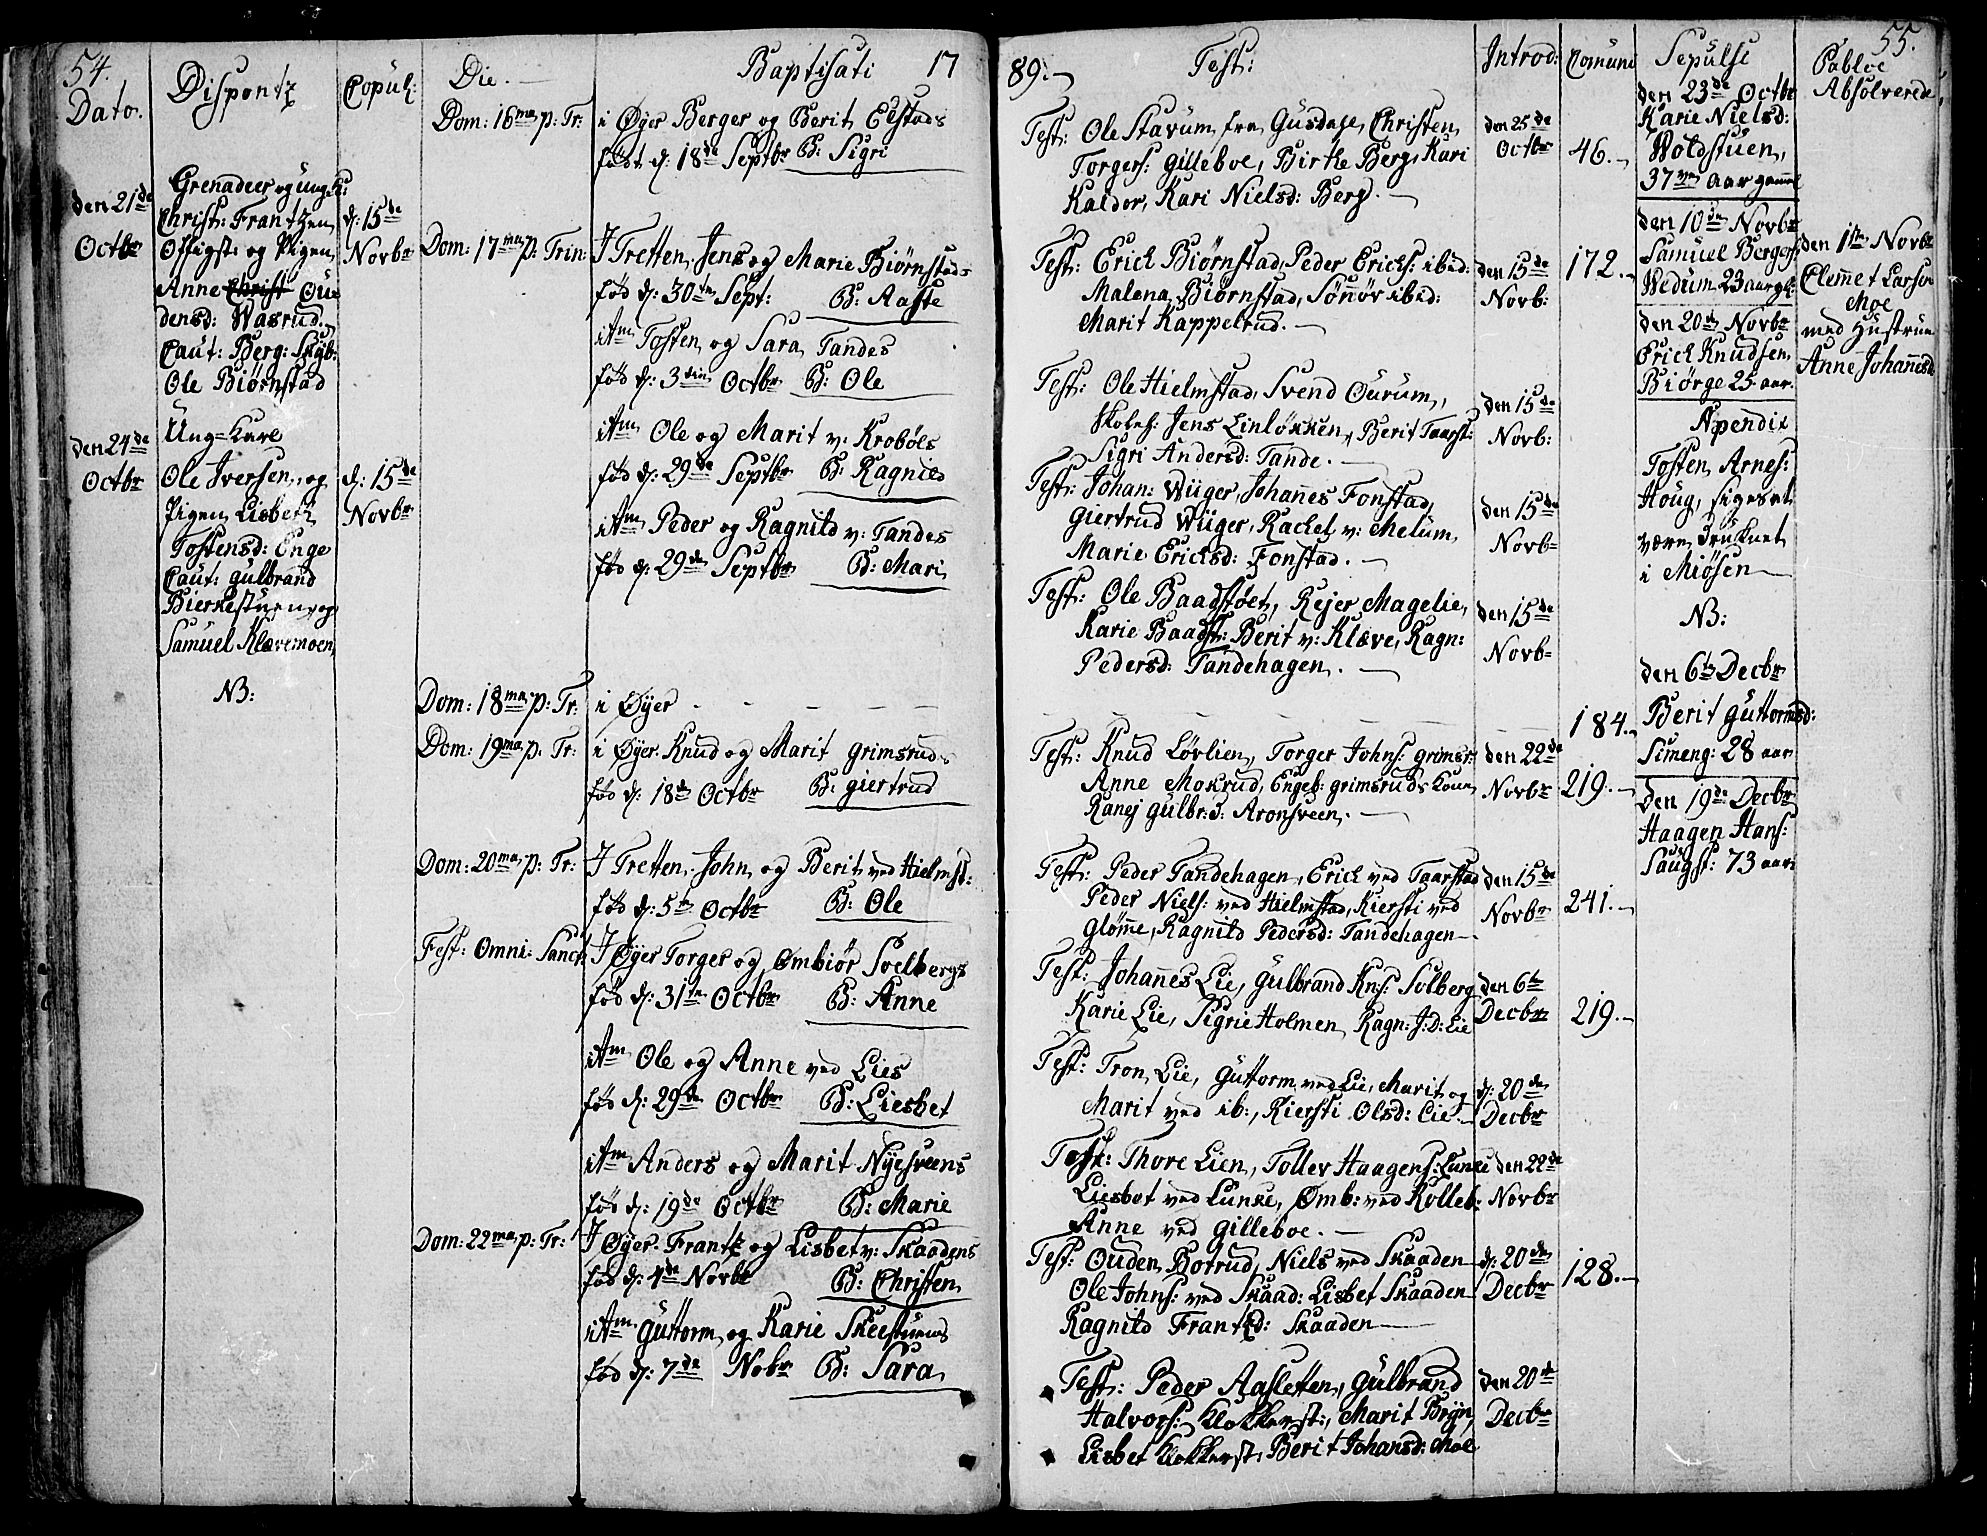 54.
Dato.
den 21de
Octbr
den 24de
Octbr
Disponts
Grenadeer og ungk:
Christ: Frantzen
Offigst: og Pigen
Anne Christ Oue
densd: Wasrud.
Caut: Berg: Skyb:
Ole Biørnstad
Ung=Karl
Ole Iversen, og
Pigen Lisbeth
Tostensd: Enge
Caut: Gulbrand
Bierkestuen, og
Samuel Klævemoen
NB:
Copul:
d: 15de
Novbr
d: 15de
Novbr
Die.
Baptisati 17
Dom: 16ma p: Tr: i Øyer Berger og Berit Eelstads
født d: 18de Septbr B: Sigri
Dom: 17ma p: Trin: I Tretten. Jens og Marie Biørnstads
fød d: 30te Sept: B: Aaste
itm Tosten og Sara Tandes
fød d: 3die Octbr B: Ole
itm Ole og Marit v: Krobøls
fød d: 29de Septbr B: Ragnild
itm Peder og Ragnild v: Tandes
fød d: 29de Septbr B: Mari
Dom: 18ma p: Tr: i Øyer
Dom: 19ma p: Tr: i Øyer Knud og Marit Grimsruds
fød d: 18de Octbr B: Giertrud
Dom: 20ma p: Tr: I Tretten. John og Berit ved Hielmst:
fød d: 5te Octbr B: Ole
Fest: Omni: Sanct: I Øyer Torger og Ombiør Soelbergs
fød d: 31te Octbr B: Anne
itm Ole og Anne ved Lies
fød d: 29de Octbr B: Liesbet
itm Anders og Marit Nyesveens
fød d: 19de Octbr B: Marie
Dom: 22ma p: Tr: I Øyer. Frantz og Lisbet v: Skaadens
fød d: 4de Novbr B: Christen
itm Guttorm og Karie Skeestuens
fød d: 7de Nobr B: Sara
89.
Test:
Test: Ole Stavum fra Gusdahl, Christen
Torgers: Gilleboe, Birthe Berg, Kari
Kaldor, Kari Nielsd: Berg.
Test: Erich Biørnstad, Peder Erichs: ibid:
Malena Biørnstad, Sønnøv ibid:
Marit Kappelrud.
Test: Ole Hielmstad, Svend Ourum,
Skoleh: Jens Linløkken, Berit Taarst:
Sigri Andersd: Tande.
Test: Johan: Wüger, Johannes Fonstad,
Giertrud Wüger, Rachel v: Melum,
Marie Ericksd: Fonstad.
Test: Ole Baadstøet, Rejer Magelie,
Karie Baadst: Berit v: Klæve, Ragn:
Pedersd: Tandehagen.
Test: Knud Løvlien, Torger Johns: Grimsr:
Anne Mokrud, Engeb: Grimsruds Kone
Ranej Gulbr: d: Aronsveen.
Test: Peder Tandehagen, Erich ved Taarstad
Peder Niels: ved Hielmstad, Kiersti ved
Glømme, Ragnild Pedersd: Tandehagen
Test: Johannes Lie, Gulbrand Kns: Solberg
Karie Lie, Sigrie Holmen, Ragn: J: D: Lie
Test: Tron Lie, Guttorm ved Lie, Marit og
Marit ved ib:, Kiersti Olsd: Lie
Test: Thore Lien, Tollev Haagens: Lunke
Liesbet ved Lunke, Omb: ved Rolleb:
Anne ved Gilleboe.
Test: Ouden Botrud, Niels ved Skaaden
Ole Johns: ved Skaad: Lisbet Skaaden
Ragnild Frantzd: Skaaden
Test: Peder Aasletten, Gulbrand
Halvors: Klokkerst:, Marit Bryn
Lisbet Klokkerst: Berit Johansd: Moe
Introd:
den 25de
Octbr
den 15de
Norb:
den 15de
Norb:
den 15de
Norb=
den 15de
Norb=
den 22de
Novbr
den 15de
Novbr
den 6te
Decbr
d: 20de
Decbr
den 22de
Novbr
d: 20de
Decbr
den 20de
Decbr
Comuni
46.
172.
184.
219.
241.
219.
128.
Sepulse
den 23de Octbr
Karie Nielsd:
Woldstuen,
37ve Aar gammel
den 10de Novbr
Samuel Bergers:
Wedum 23 aar gl:
den 20de Novbr
Erich Knudsen
Biørge 25 aar.
Apendix
Tosten Arnes:
Houg, siges at
være Druknet
i Miøsen
NB:
den 6te Decbr
Berit Guttormsd:
Simeng: 28 aar
den 19de Decbr
Haagen Hans:
Saugst: 73 aar
55.
Publice
Absolverede
den 1te Novbr
Clemet Larsen
Moe
med Hustrue
Anne Johannesd: